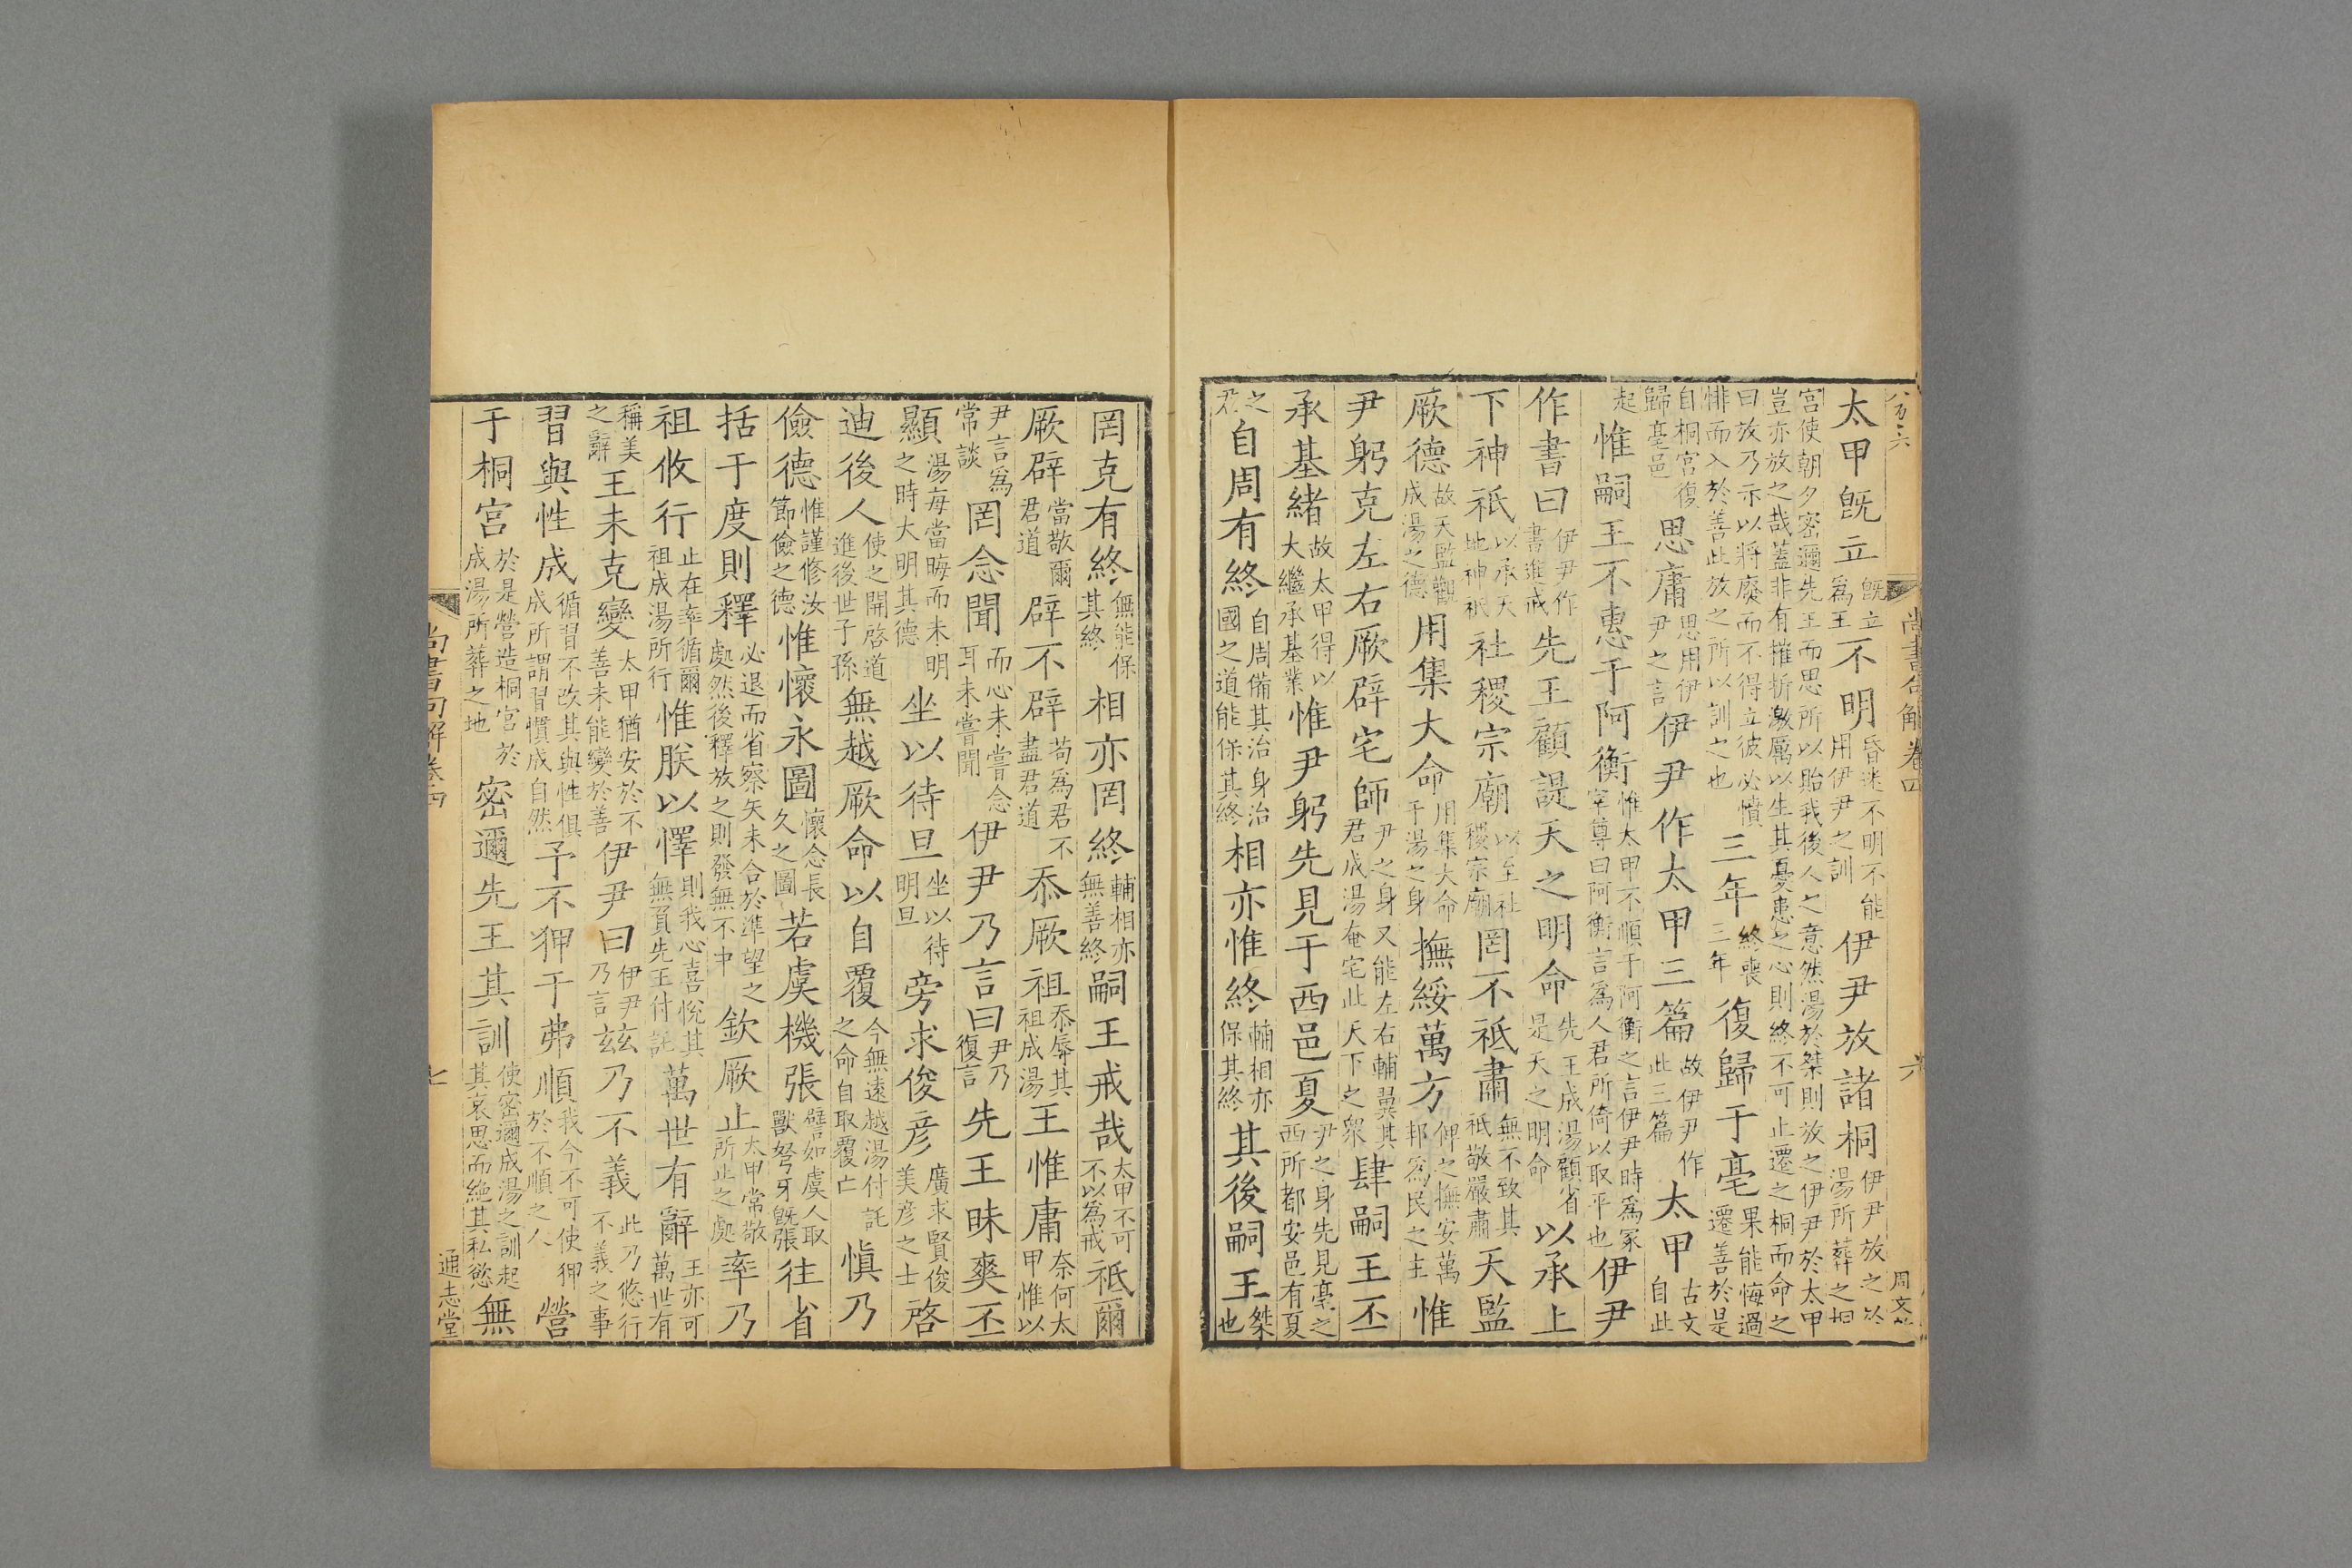 太甲既立既立爲王不明昏迷不明不能用伊尹之訓伊尹放諸桐伊尹放之於湯所葬之桐
宮使朝夕密邇先王而思所以貽我後人之意然湯於桀則放之伊尹於太甲豈亦放之哉蓋非有摧折激厲以生其憂患之心則終不可止遷之桐而命之
曰放乃示以將廢而不得立彼必憤悱而入於善此放之所以訓之也三年終喪三年復歸于亳果能悔過遷善於是
自桐宮復歸亳邑思庸思用伊尹之言伊尹作太甲三篇故伊尹作此三篇太甲古文自此
起惟嗣王不惠于阿衡惟太甲不順于阿衡之言伊尹時爲冢宰尊曰阿衡言爲人君所倚以取平也伊尹
作書曰伊尹作書進戒先王顧諟天之明命先王成湯顧省是天之明命以承上
下神祇以承天地神祇社稷宗廟以至社稷宗廟罔不祗肅無不致其祗敬嚴肅天監
厥德故天監觀成湯之德用集大命用集大命于湯之身撫綏萬方俾之撫安萬邦爲民之主惟
尹躬克左右厥辟宅師尹之身又能左右輔翼其君成湯奄宅此天下之衆肆嗣王丕
承基緒故太甲得以大繼承基業惟尹躬先見于西邑夏尹之身先見亳之西所都安邑有夏
之君自周有終自周備其治身治國之道能保其終相亦惟終輔相亦保其終其後嗣王桀也
罔克有終無能保其終相亦罔終輔相亦無善終嗣王戒哉太甲不可不以爲戒祗爾
厥辟當敬爾君道辟不辟苟爲君不盡君道忝厥祖忝辱其祖成湯王惟庸奈何太甲惟以
尹言爲常談罔念聞而心未嘗念耳未嘗聞伊尹乃言曰尹乃復言先王昧爽丕
顯湯每當晦而未明之時大明其德坐以待旦坐以待明旦旁求俊彦廣求賢俊美彦之士啓
迪後人使之開啓道進後世子孫無越厥命以自覆今無遠越湯付託之命自取覆亡愼乃
儉德惟謹修汝節儉之德惟懷永圖懷念長久之圖若虞機張譬如虞人取獸弩牙既張往省
括于度則釋必退而省察矢未合於準望之處然後釋放之則發無不中欽厥止太甲常敬所止之處率乃
祖攸行止在率循爾祖成湯所行惟朕以懌則我心喜悅其無負先王付託萬世有辭王亦可萬世有
稱美之辭王未克變太甲猶安於不善未能變於善伊尹曰伊尹乃言兹乃不義此乃悠行不義之事
習與性成循習不改其與性俱成所謂習慣成自然予不狎于弗順我今不可使狎於不順之人營
于桐宮於是營造桐宮於成湯所葬之地密邇先王其訓使密邇成湯之訓起其哀思而絶其私慾無
尚書句解卷四
七
通志堂